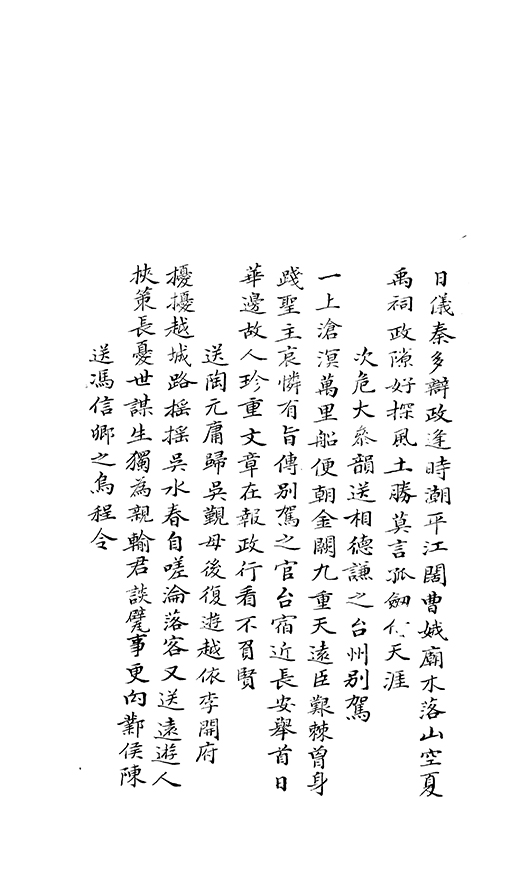 日儀秦多辯政逢時潮平江闊曹娥廟水落山空夏
禹祠政隙好探風土勝莫言孤劒代天涯
次危大叅韻送相德謙之台州别駕
一上滄溟萬里船便朝金闕九重天逺臣艱棘曾身
踐聖主哀憐有旨傳别駕之官台宿近長安舉首日
華邊故人珍重文章在報政行看不負賢
送陶元庸歸吳覲母後復遊越依李開府
擾擾越城路摇摇吳水春自嗟淪落客又送逺遊人
挾策長憂世謀生獨為親輸君談躄事更向酇侯陳
送馮信卿之烏程令